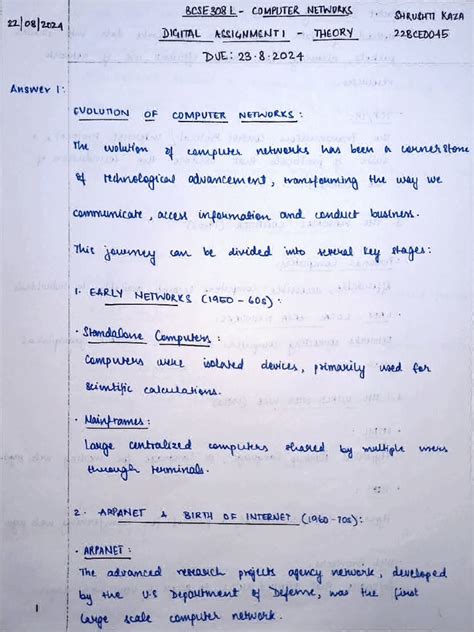 BCSE308L - COMPUTER NETWORKS
SHRUDHTI KAZA
22/08/2024
DIGITAL ASSIGNMENT 1 - THEORY
22BCE0045
DUE: 23.8.2024
Answer 1:
EVOLUTION OF COMPUTER NETWORKS:
The evolution of computer networks has been a cornerstone
of technological advancement, transforming the way we
communicate, access information and conduct business.
This journey can be divided into several key stages:
1. EARLY NETWORKS (1950 - 60s):
• Standalone Computers:
Computers were isolated devices, primarily used for
scientific calculations.
• Mainframes:
Large centralized computers shared by multiple users
through terminals.
2. ARPANET & BIRTH OF INTERNET (1960-70s):
• ARPANET:
The advanced research projects agency network, developed
by the U.S Department of Defense, was the first
large scale computer network.
1